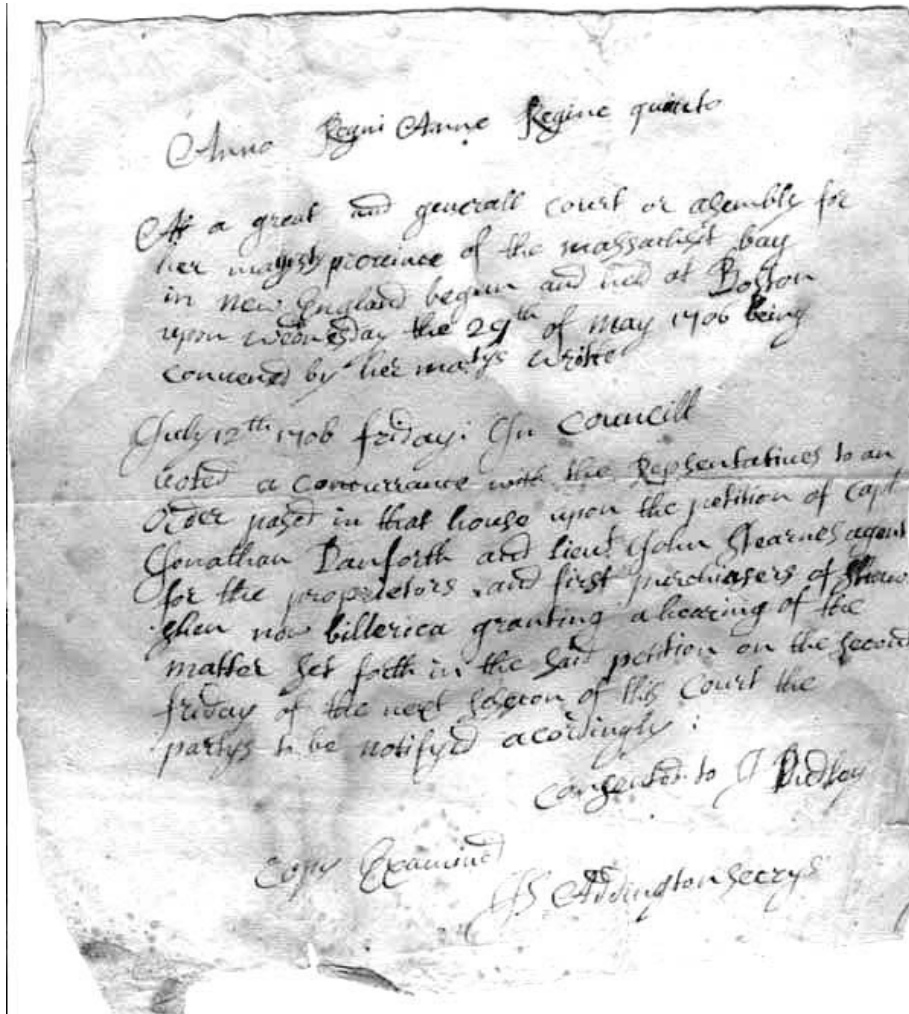 Anno Regni Anne Regine quinto
Att a great and generall court or asembly for
her majesty province of the massachsit bay
in new England begun and held at Boston
upon wednesday the 29th of may 1706 being
convened by her matys write
July 12th 1706 friday: In Councill
voted a concurrance with the Repsentatives to an
order pased in that house upon the petition of capt
Jonathan Danforth and lieut John Stearnes agent
for the proprietors and first purchasers of Shaw
shen now billerica granting a hearing of the
matter set forth in the said petition on the second
friday of the next session of this Court the
partys to be notifyed acordingly:
consented to J Dudley
Copy Examined
Js Addington Secrys